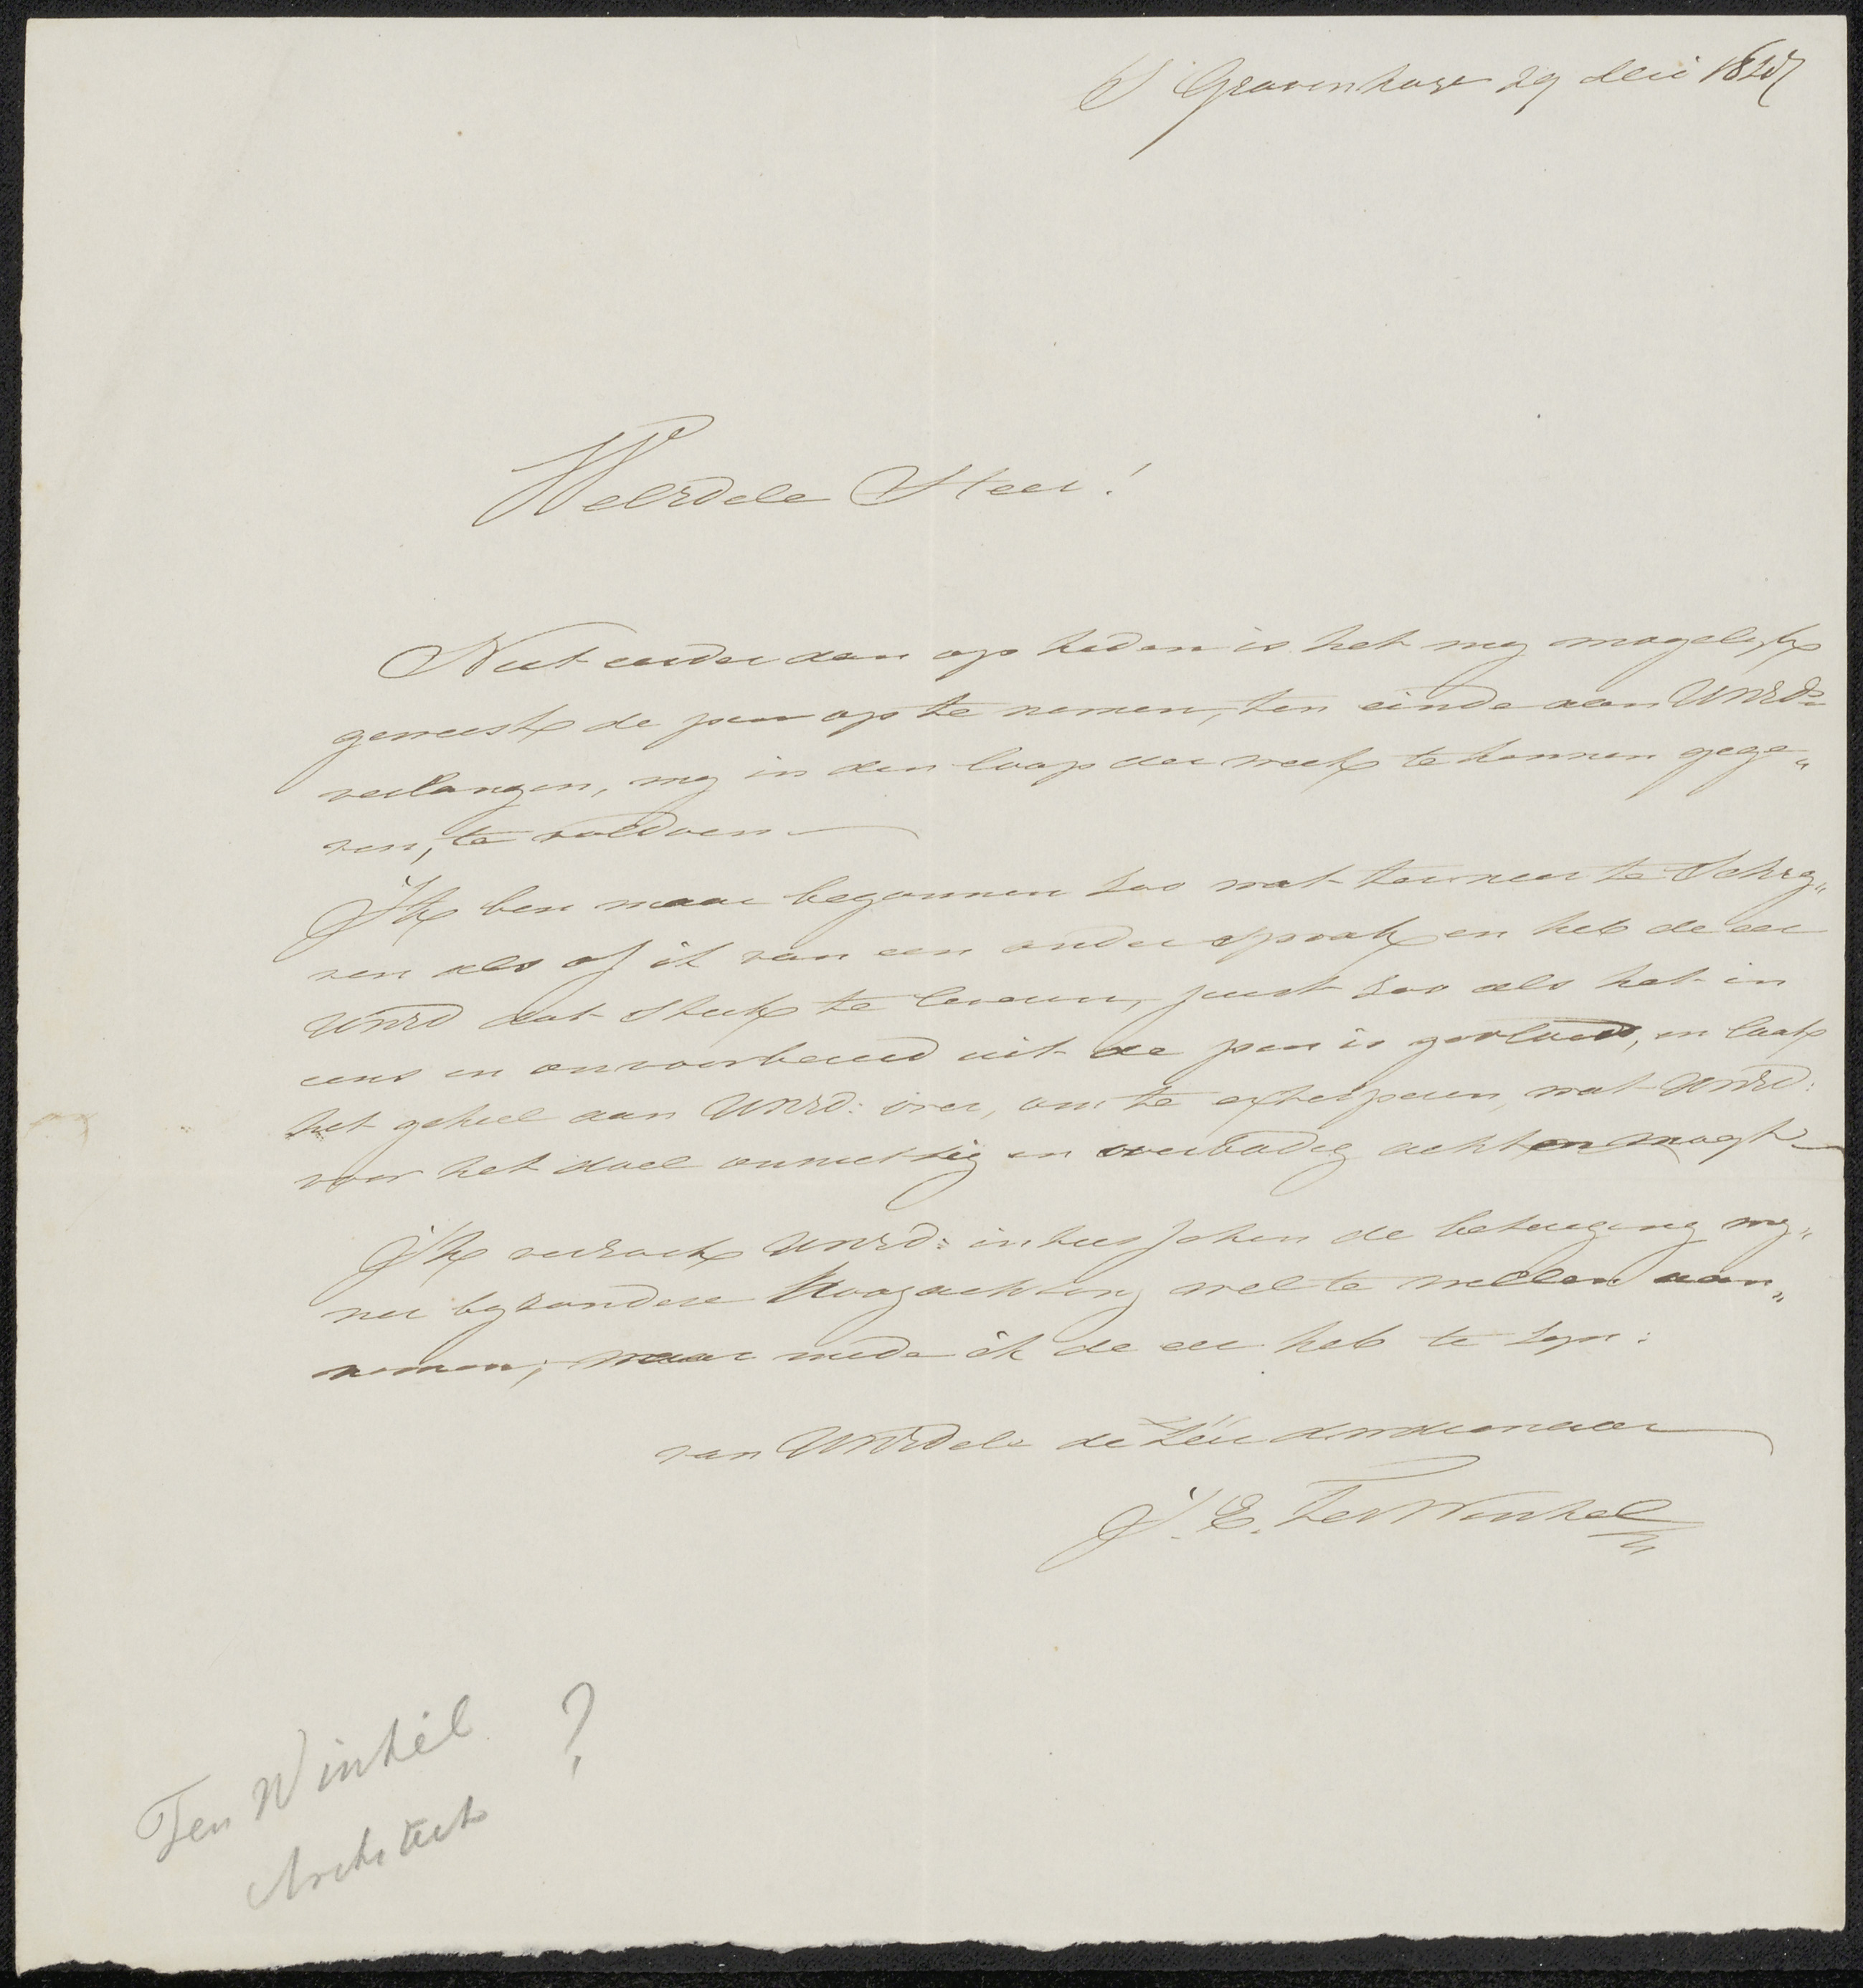 S' Gravenhage 29 Mei
WelEdele Heer!
Niet eerder dan op heden is het my mogelyk
geweest de pen op te nemen, ten einde aan UWEd:
verlangen, my in den loop der week te kennen gege„
ven, te voldoen
Ik ben maar begonnen zoo wat ter neer te schry„
ven als of ik van een ander sprak en heb de eer
UWEd dat stuk te leveren, juist zoo als het in
eens en onvoorbereid uit de pen is gevloeid, en laat
het geheel aan UWEd: over, om te exterperen, wat UWEd:
voor het doel onnuttig en overbodig achten mogt
Ik verzoek UWEd: intusschen de betuiging my„
ner byzondere Hoogachting wel te willen aan„
nemen, waar mede ik de eer heb te zyn:
van UWEdele de dienaar
J. E. Ter Winkel
Ten Winkel ?
Architect